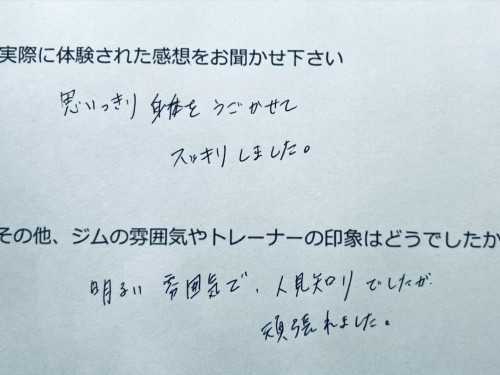 実際に体験された感想をお聞かせ下さい
思いっきり身体をうごかせて
スッキリしました。
その他、ジムの雰囲気やトレーナーの印象はどうでしたか
明るい雰囲気で、人見知りでしたが
頑張れました。